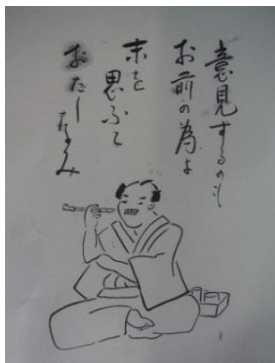 意見するのも
お前の為よ
末を思ふて
おたしなみ